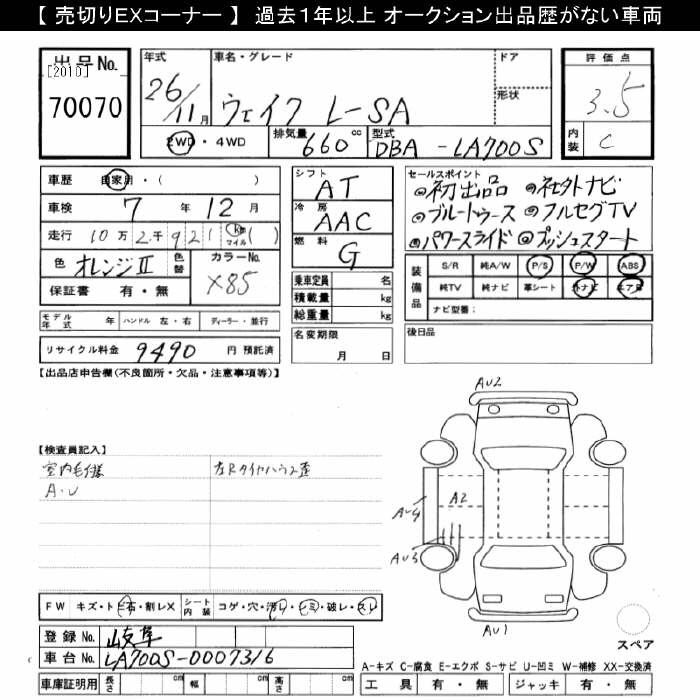 【 売切りEXコーナー 】 過去1年以上 オークション出品歴がない車両
出品No.
[2010]
70070
年式
26/11月
車名・グレード
ウェイク L-SA
ドア
形状
評価点
3.5
内装
C
2WD・4WD
排気量
660cc
型式
DBA-LA700S
車歴 自家用・( )
車検 7年12月
走行 10万2千921(km マイル)( )
色 オレンジⅡ
色替
カラーNo.
X85
保証書 有・無
シフト
AT
冷房
AAC
燃料
G
乗車定員 名
積載量 kg
総重量 kg
セールスポイント
◎初出品 ◎社外ナビ
◎ブルートゥース ◎フルセグTV
◎パワースライド ◎プッシュスタート
装備品
S/R 純A/W P/S P/W ABS
純TV 純ナビ 革シート 外ナビ エアB
ナビ型番:
モデル年式 年 ハンドル 左・右 ディーラー・並行
リサイクル料金 9490 円 預託済
名変期限
月 日
後日品
【出品店申告欄(不良箇所・欠品・注意事項等)】
【検査員記入】
室内毛仕様
A.U
左Rタイヤハウス歪
AU2
AU4
A2
AU3
AU1
スペア
FW キズ・トビ石・割レX
シート内装 コゲ・穴・汚レ・シミ・破レ・スレ
登録No. 岐阜
車台No. LA700S-0007316
車庫証明用 長さ cm 幅 cm 高さ cm
A-キズ C-腐食 E-エクボ S-サビ U-凹ミ W-補修 XX-交換済
工具 有・無 ジャッキ 有・無